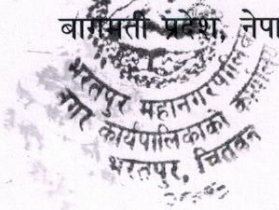 बागमती प्रदेश, नेपा
भरतपुर महानगरपालिका
नगर कार्यपालिकाको कार्यालय
भरतपुर, चितवन